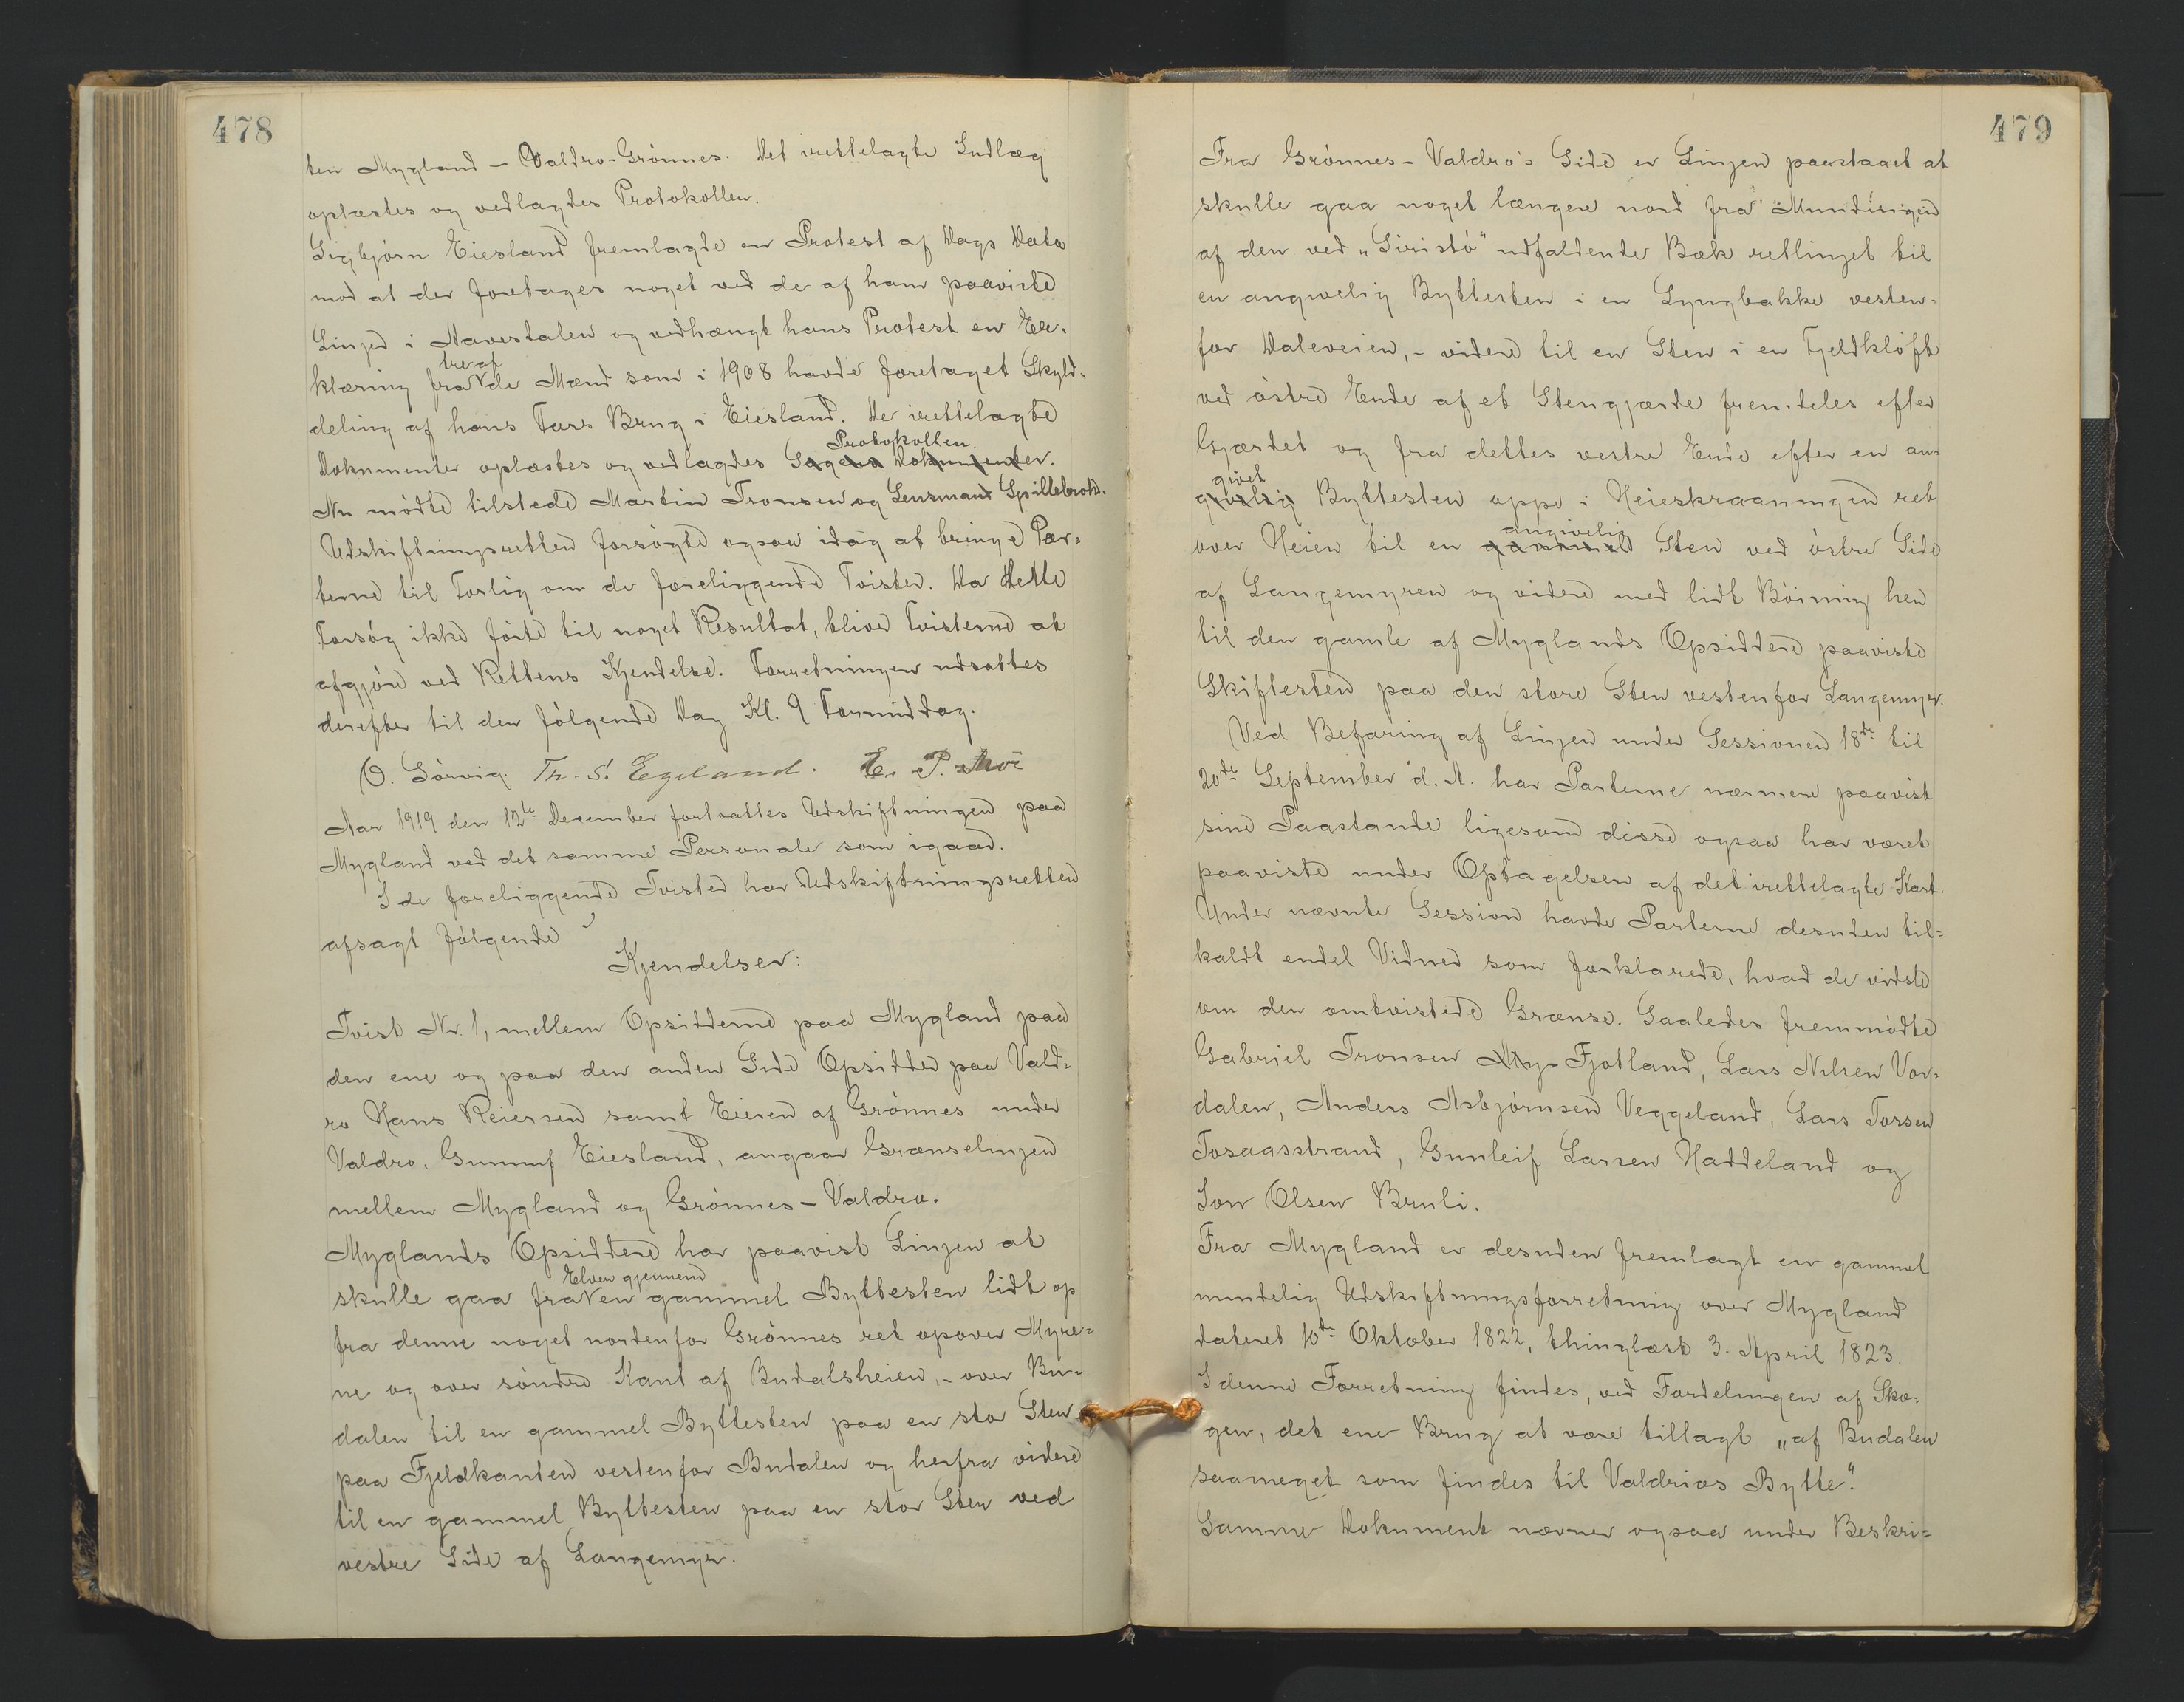 478
ten Mygland - Valdro-Grønnes. Det irettelagte Indlæg
oplæstes og vedlagdes Protokollen.
Sigbjørn Eiesland fremlagde en Protest af Dags Dato
mod at der foretages noget ved de af ham paaviste
Linjer i Navestalen og vedhængt hans Protest en Er-
klæring fra tre af de Mænd som i 1908 havde foretaget Skyld-
deling af hans Fars Brug i Eiesland. De irettelagte
Dokumenter oplæstes og vedlagdes Sagens Dokumenter. Protokollen.
Nu mødte tilstede Martin Tronsen og Lensmand Spillebrok.
Udskiftningsretten forsøgte ogsaa idag at bringe Par-
terne til Forlig om de foreliggende Tvister. Da dette
Forsøg ikke førte til noget Resultat, bliver Tvisterne at
afgjøre ved Rettens Kjendelse. Forretningen udsattes
derefter til den følgende Dag Kl. 9 Formiddag.
O. Sørvig. Th. S. Egeland. E. P. Moi
Aar 1919 den 12te December fortsattes Udskiftningen paa
Mygland ved det samme Personale som igaar.
I de foreliggende Tvister har Udskiftningsretten
afsagt følgende
Kjendelser:
Tvist Nr. 1, mellem Opsidderne paa Mygland paa
den ene og paa den anden Side Opsidder paa Vald-
ro Hans Reiersen samt Eieren af Grønnes under
Valdro, Gunnuf Eiesland, angaar Grænselinjen
mellem Mygland og Grønnes - Valdro.
Myglands Opsiddere har paavist Linjen at
skulle gaa fra Elven gjennem en gammel Byttesten lidt op
fra denne noget nordenfor Grønnes ret opover Myre-
ne og over søndre Kant af Budalsheien, - over Bu-
dalen til en gammel Byttesten paa en stor Sten
paa Fjeldkanten vestenfor Budalen og herfra videre
til en gammel Byttesten paa en stor Sten ved
vestre Side af Langemyr.
479
Fra Grønnes - Valdro's Side er Linjen paastaaet at
skulle gaa noget længere nord fra Mundingen
af den ved "Siristø" udfaldende Bæk retlinjet til
en angivelig Byttesten i en Lyngbakke vesten-
for Daleveien, - videre til en Sten i en Fjeldkløft
ved østre Ende af et Stengjærde fremdeles efter
Gjærdet og fra dettes vestre Ende efter en an-
givelig givet Byttesten oppe i Heieskraaningen ret
over Heien til en gammel angivelig Sten ved østre Side
af Langemyren og videre med lidt Bøining hen
til den gamle af Myglands Opsiddere paaviste
Skiftesten paa den store Sten vestenfor Langemyr.
Ved Befaring af Linjen under Sessionen 18de til
20de September d. A. har Parterne nærmere paavist
sine Paastande ligesom disse ogsaa har været
paaviste under Optagelsen af det irettelagte Kart.
Under nævnte Session havde Parterne desuden til-
kaldt endel Vidner som forklarede, hvad de vidste
om den omtvistede Grænse. Saaledes fremmødte
Gabriel Tronsen My- Fjotland, Lars Nilsen Vor-
dalen, Anders Asbjørnsen Veggeland, Lars Torsen
Tosaasstrand, Gunleif Larsen Haddeland og
Jon Olsen Bruli.
Fra Mygland er desuden fremlagt en gammel
mindelig Udskiftningsforretning over Mygland
dateret 10de Oktober 1822, thinglæst 3. April 1823.
I denne Forretning findes, ved Fordelingen af Sko-
gen, det ene Brug at være tillagt "af Budalen
saameget som findes til Valdrios Bytte".
Samme Dokument nævner ogsaa under Beskri-